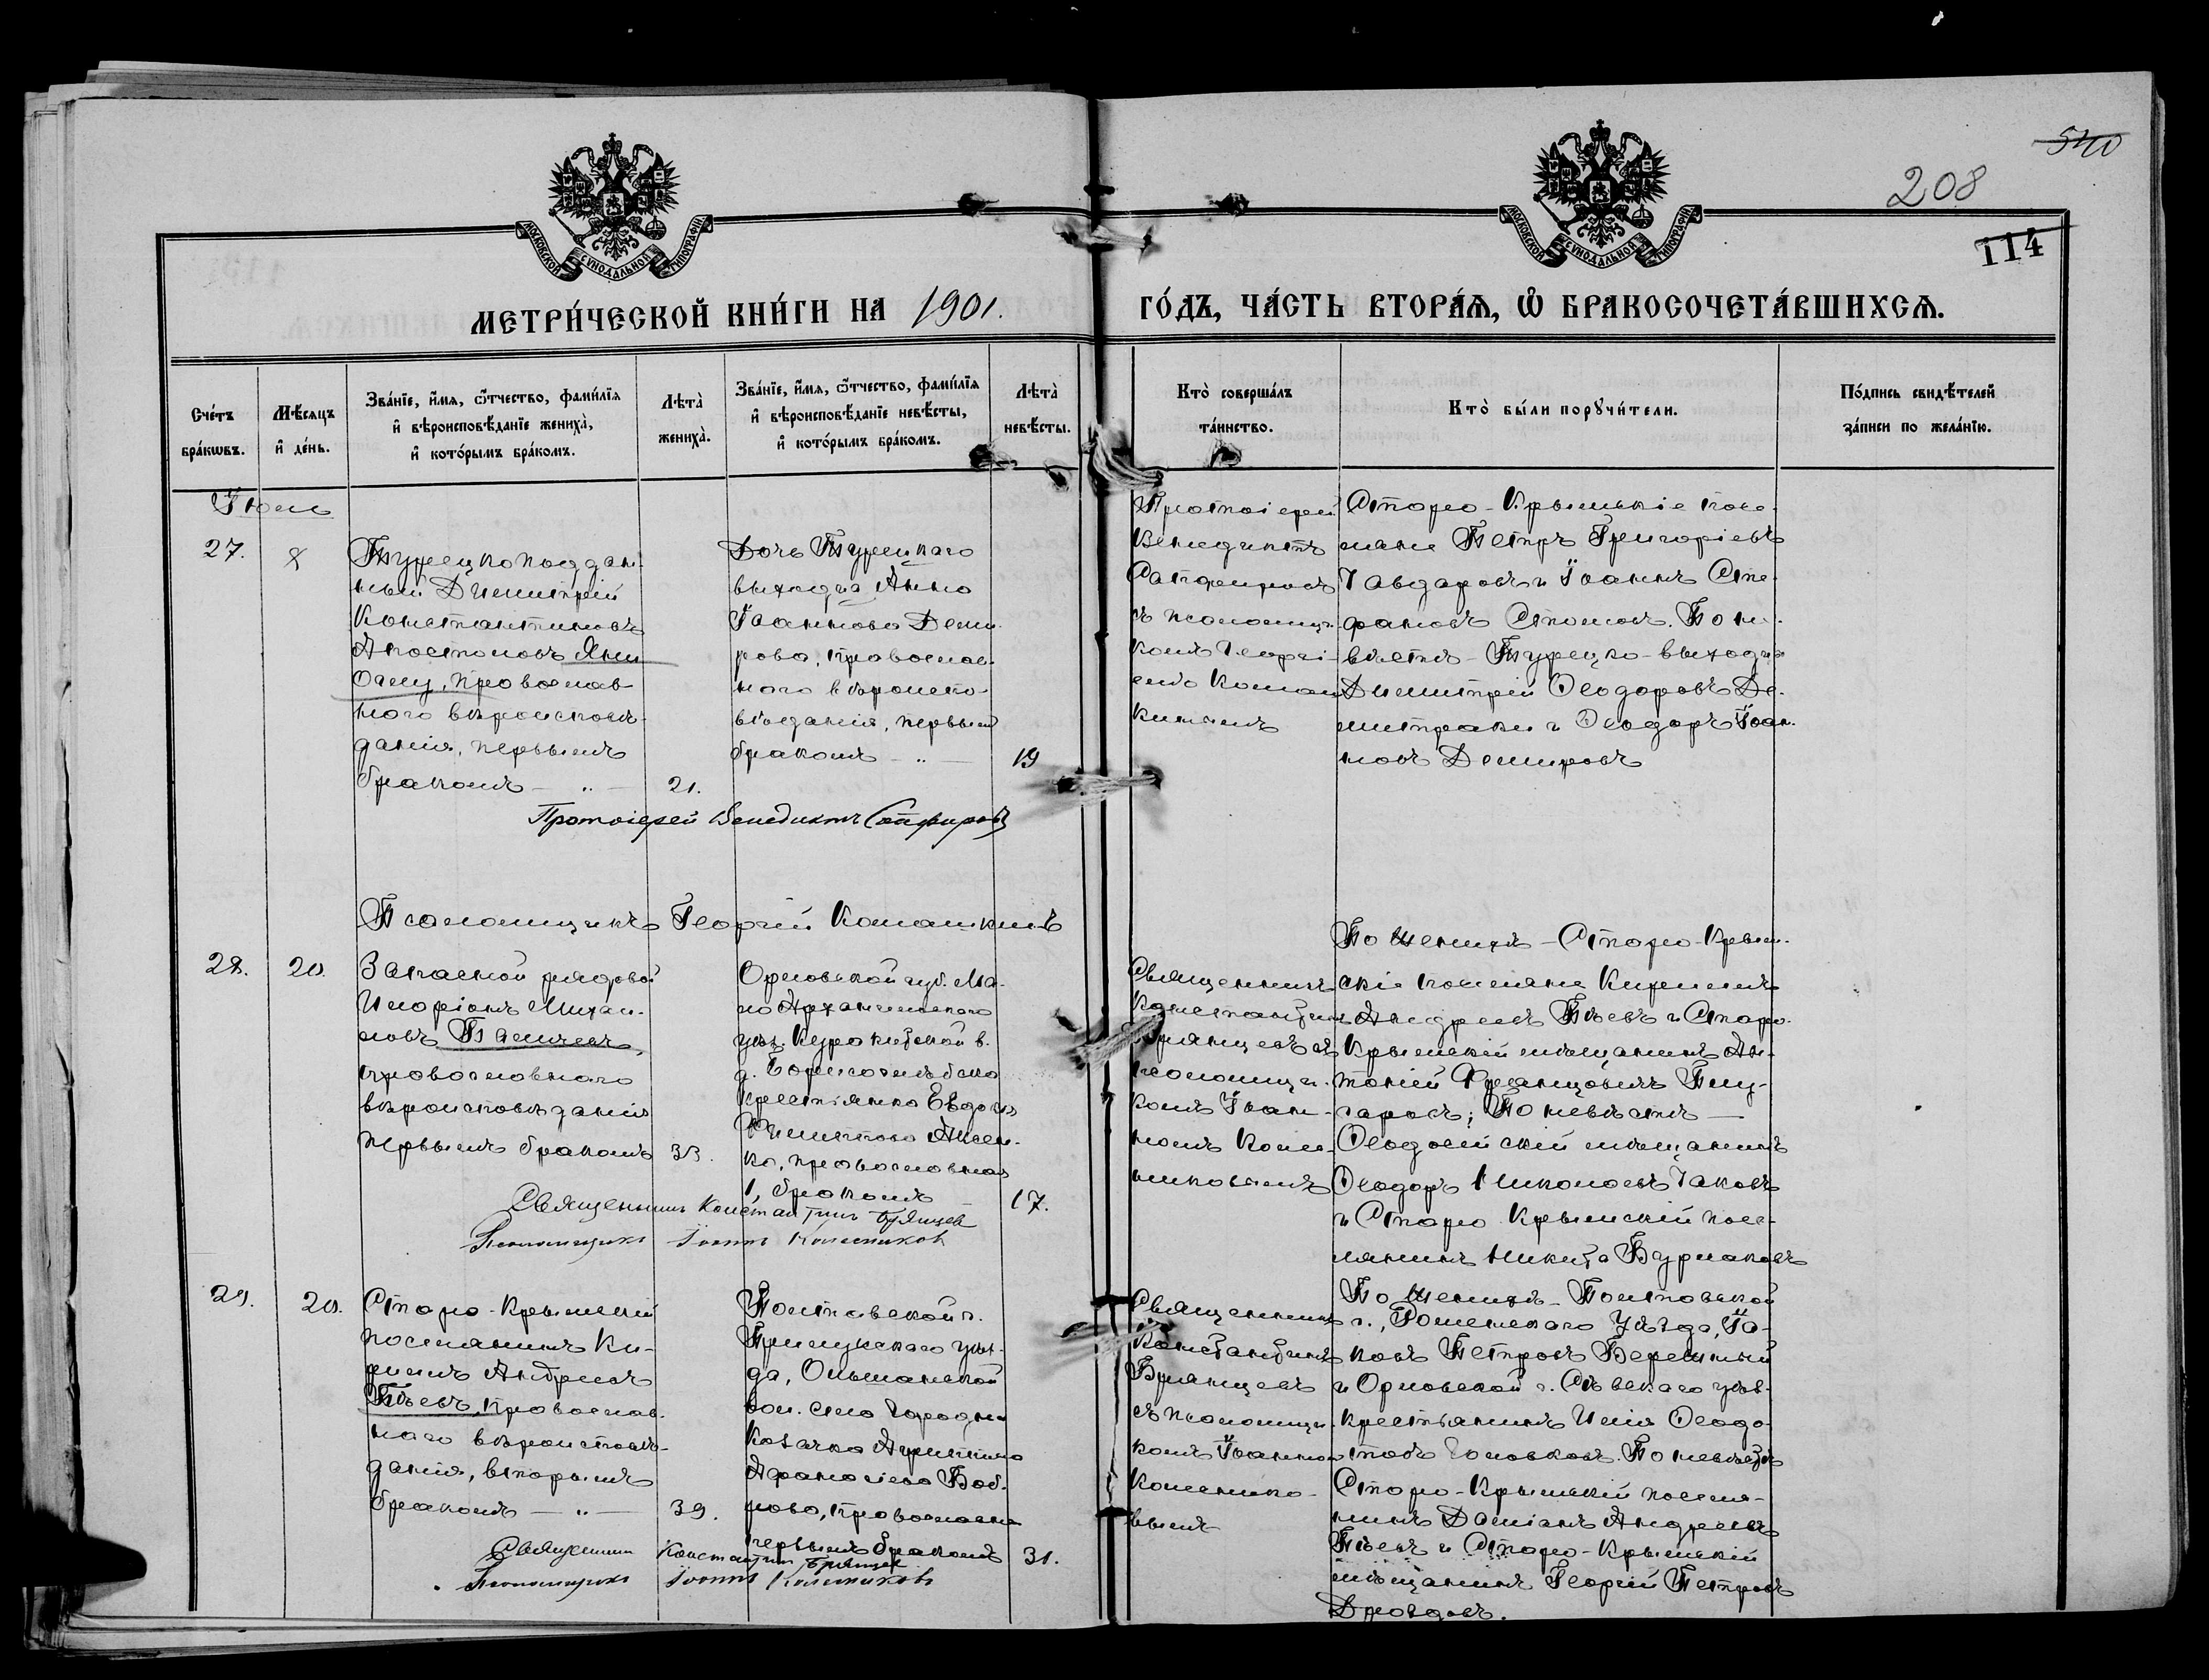 540
208
114
МОСКОВСКОЙ СѴНОДАЛЬНОЙ ТИПОГРАФІИ
МОСКОВСКОЙ СѴНОДАЛЬНОЙ ТИПОГРАФІИ
МЕТРИ́ЧЕСКОЙ КНИ́ГИ НА 1901.
ГО́ДЪ, ЧА́СТЬ ВТОРА́Ѧ, Ѽ БРАКОСОЧЕТА́ВШИХСѦ.
Сче́тъ
бра́кѡвъ.
Мѣ́сяцъ
и҆ де́нь.
Зва́нїе, и҆́мя, ѻ҆́тчество, фами́лїя
и҆ вѣроисповѣ́данїе жениха̀,
и҆ кото́рымъ бра́комъ.
Лѣта̀
жениха̀.
Зва́нїе, и҆́мя, ѻ҆́тчество, фами́лїя
и҆ вѣроисповѣ́данїе невѣ́сты,
и҆ кото́рымъ бра́комъ.
Лѣта̀
невѣ́сты.
Кто̀ соверша́лъ
та́инство.
Кто̀ бы́ли порꙋчи́тели.
По́дпись свидѣ́телей
за́писи по жела́нїю.
27.
8
Турецкоподдан-
ный Димитрій
Константиновъ
Апостоловъ Яни
Оглу, православ-
наго вѣроисповѣ-
данія, первымъ
бракомъ — „ —
21.
Дочь Турецкаго
выходца Анна
Іоаннова Деми-
рова, православ-
наго вѣроиспо-
вѣданія, первымъ
бракомъ — „ —
19
Протоіерей
Венедиктъ
Сапфировъ
съ псаломщи-
комъ Георгі-
емъ Комаш
кинымъ
Старо-Крымскіе посе-
ляне Петръ Григоріевъ
Тавдаровъ и Іоаннъ Сте-
фановъ Столовъ. По не-
вѣстѣ - Турецко-выходцы
Димитрій Ѳеодоровъ Де-
митраки и Ѳеодоръ Іоан-
новъ Демировъ
Протоіерей Венедиктъ Сапфировъ
Псаломщикъ Георгій Комашкинъ
28.
20.
Запасной рядовой
Иларіонъ Михаи-
ловъ
православнаго
вѣроисповѣданія
первымъ бракомъ
33.
Орловской губ. Ма-
ло Архангельскаго
уѣз. Куракинской в.
д. Борисоглѣбска
крестьянка Евдокія
православная
1, бракомъ
17.
Священникъ
Константинъ
Брянцевъ съ
псаломщи-
комъ Іоан-
номъ Колес-
никовымъ
По женихѣ - Старо-Крым-
скіе поселяне Кириллъ
Андреевъ Пѣевъ и Старо-
Крымскій мѣщанинъ Ан-
тоній Францовичъ
По невѣстѣ —
Ѳеодосійскій мѣщанинъ
Ѳеодоръ Николаевъ
и Старо-Крымскій посе-
лянинъ Никита Бурлаковъ
Священникъ Константинъ Брянцев
Псаломщикъ Іоаннъ Колесников
29.
20.
Старо-Крымскій
поселянинъ Ки-
риллъ Андреевъ
Пѣевъ, православ-
наго вѣроисповѣ-
данія, вторымъ
бракомъ — „ —
39.
Полтавской г.
Прилукскаго уѣз-
да, Ольшанской
вол. села Городни
казачка Агриппина
Афанасіева Боб-
рова, православна
первымъ бракомъ
31.
Священникъ
Константинъ
Брянцевъ
съ псаломщи-
комъ Іоанном
Колеснико-
вымъ
По женихѣ - Полтавской
г., Роменскаго Уѣзда, Іа-
ковъ Петровъ Бережный
и Орловской г. Сѣвскаго уѣз.
крестьянинъ Илія Ѳеодо-
товъ Головковъ. По невѣстѣ
Старо-Крымскій поселя-
нинъ Даміанъ Андреевъ
Пѣевъ и Старо-Крымскій
мѣщанинъ Георгій Петровъ
Дроздовъ.
Священникъ Константинъ Брянцев
Псаломщикъ Іоаннъ Колесниковъ